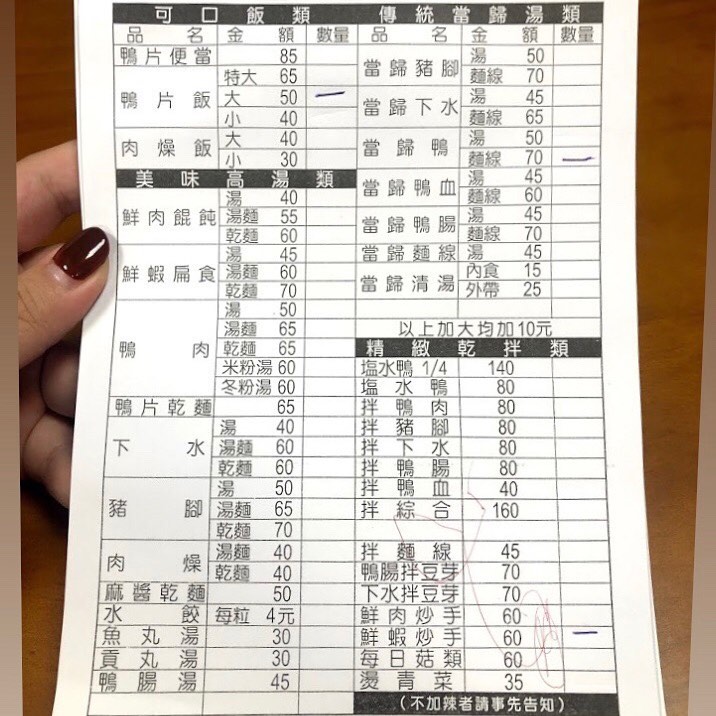 可口飯類
品名 金額 數量
鴨片便當 85
鴨片飯 特大 65
大 50 一
小 40
肉燥飯 大 40
小 30
美味高湯類
鮮肉餛飩 湯 40
湯麵 55
乾麵 60
鮮蝦扁食 湯 45
湯麵 60
乾麵 70
鴨肉 湯 50
湯麵 65
乾麵 65
米粉湯 60
冬粉湯 60
鴨片乾麵 65
下水 湯 40
湯麵 60
乾麵 60
豬腳 湯 50
湯麵 65
乾麵 70
肉燥 湯麵 40
乾麵 40
麻醬乾麵 50
水餃 每粒 4元
魚丸湯 30
貢丸湯 30
鴨腸湯 45
傳統當歸湯類
品名 金額 數量
當歸豬腳 湯 50
麵線 70
當歸下水 湯 45
麵線 65
當歸鴨 湯 50
麵線 70 一
當歸鴨血 湯 45
麵線 60
當歸鴨腸 湯 45
麵線 70
當歸麵線 湯 45
當歸清湯 內食 15
外帶 25
以上加大均加10元
精緻乾拌類
塩水鴨 1/4 140
塩水鴨 80
拌鴨肉 80
拌豬腳 80
拌下水 80
拌鴨腸 80
拌鴨血 40
拌綜合 160
拌麵線 45
鴨腸拌豆芽 70
下水拌豆芽 70
鮮肉炒手 60
鮮蝦炒手 60 一
每日菇類 60
燙青菜 35
(不加辣者請事先告知)